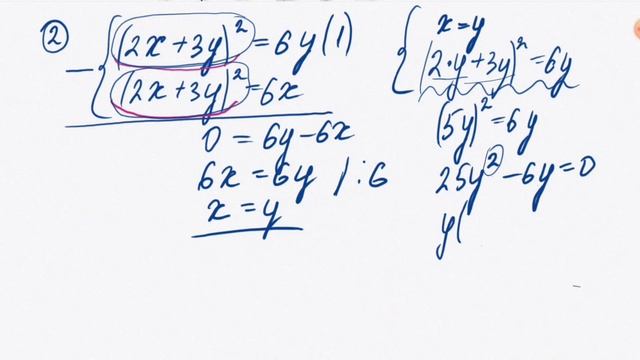 ② (2x+3y)² = 6y (1)
– (2x+3y)² = 6x
0 = 6y – 6x
6x = 6y / :6
x = y
x = y
(2·y+3y)² = 6y
(5y)² = 6y
25y² – 6y = 0
y(